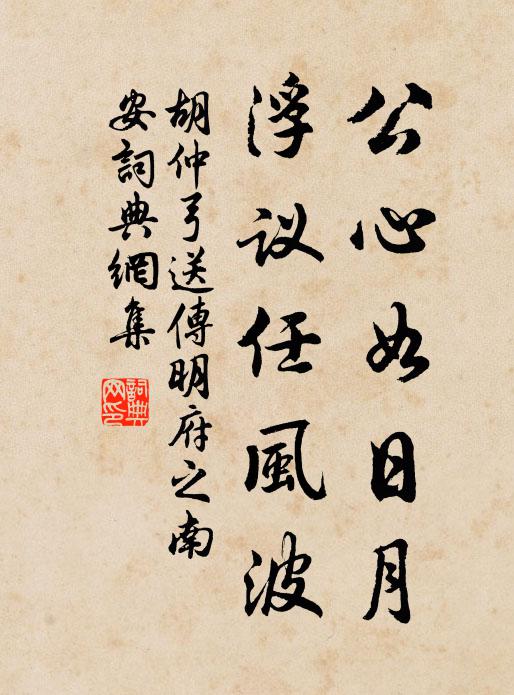 公心如日月
浮议任風波
胡仲弓送傅明府之南
安詞典網集
詞典网印